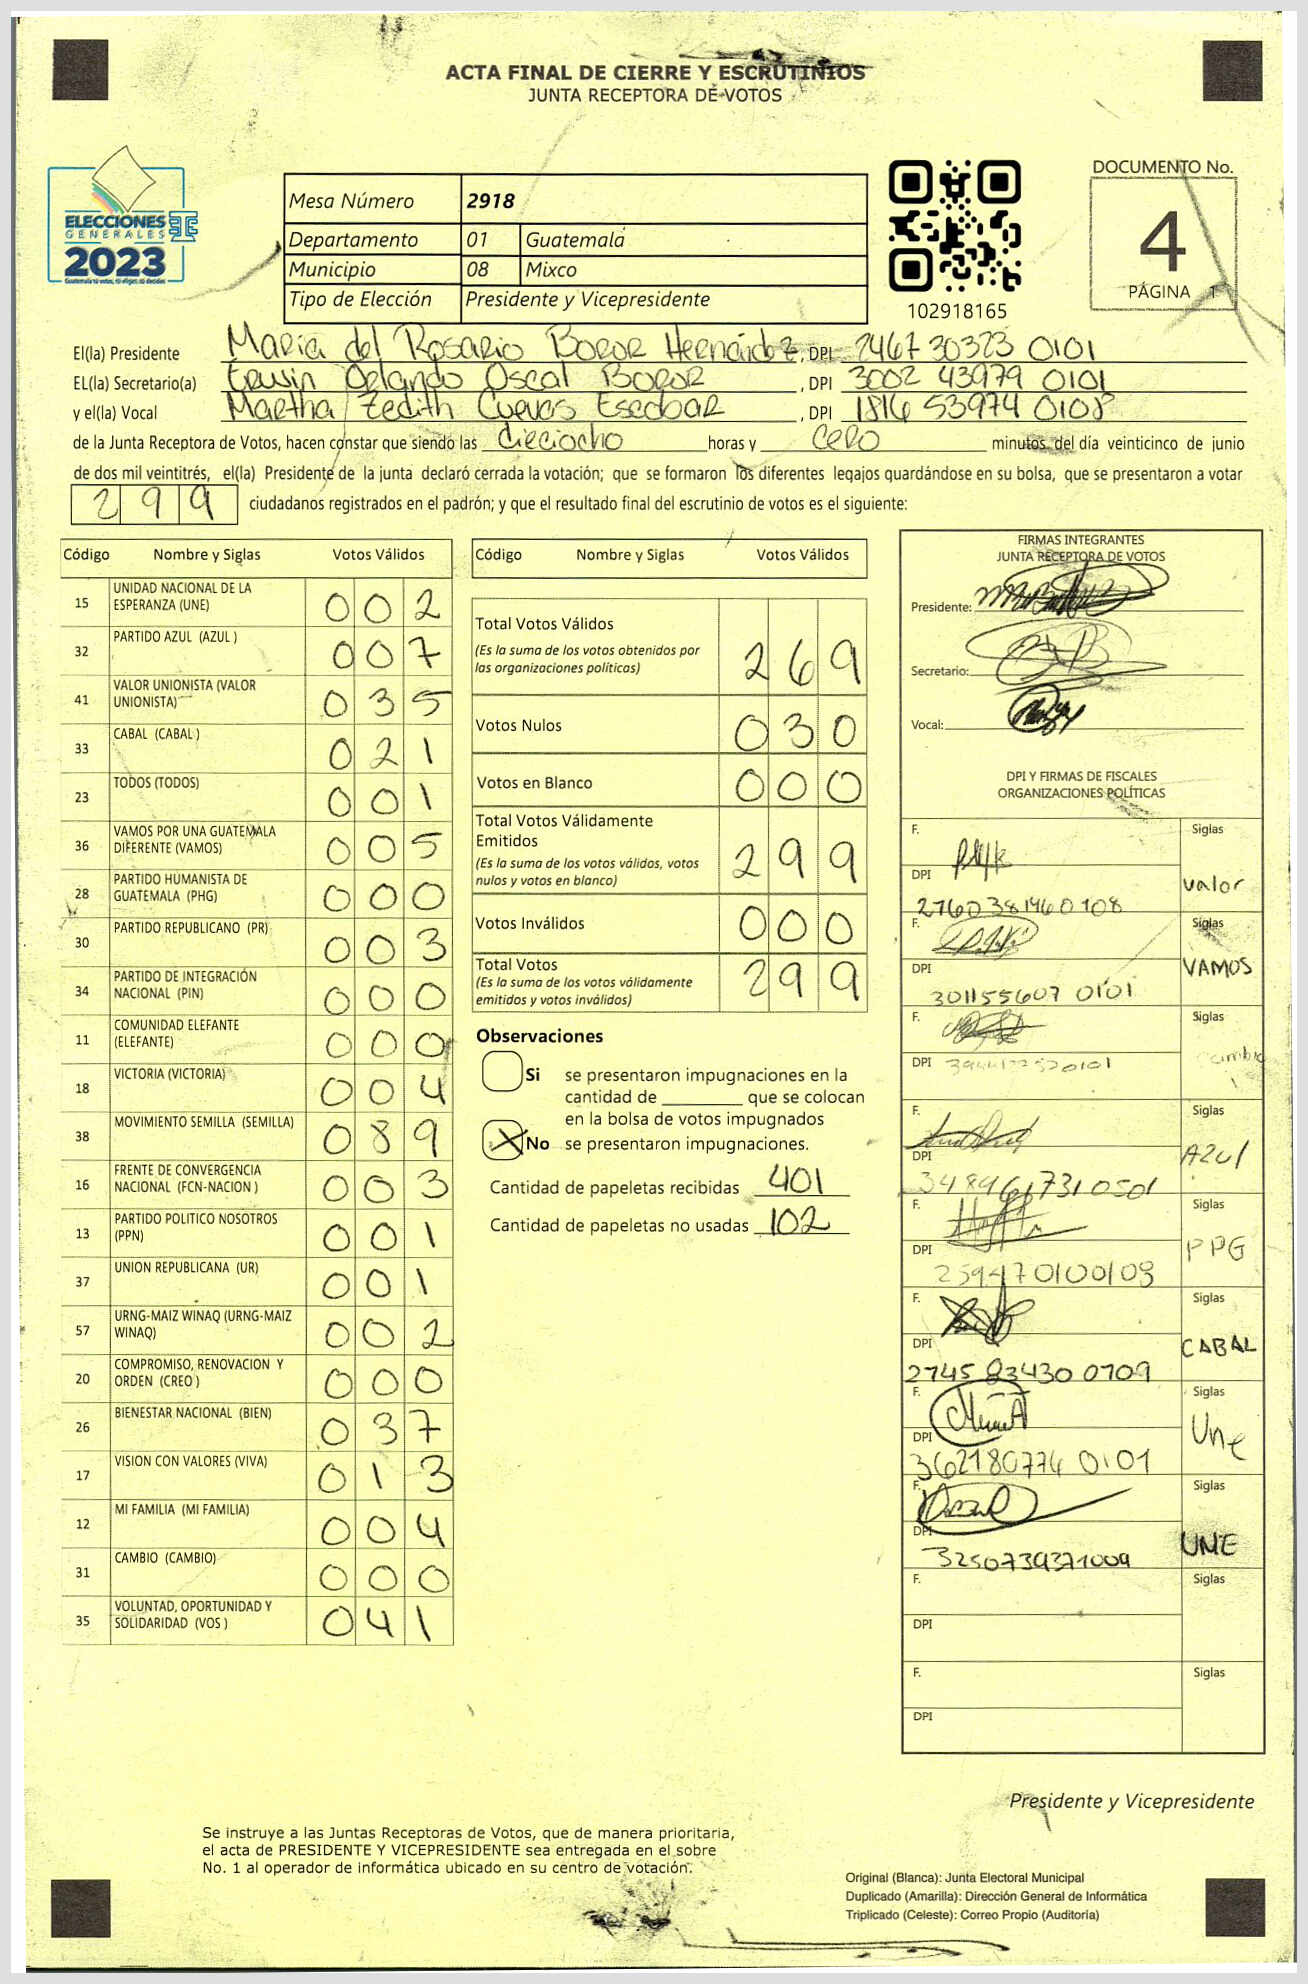 ACTA FINAL DE CIERRE Y ESCRUTINIOS
JUNTA RECEPTORA DE VOTOS
ELECCIONES
GENERALES
2023
Guatemala tú votas, tú eliges, tú decides
Mesa Número 2918
Departamento 01 Guatemala
Municipio 08 Mixco
Tipo de Elección Presidente y Vicepresidente
102918165
DOCUMENTO No.
4
PÁGINA 1
El(la) Presidente Maria del Rosario Boror Hernández, DPI 2467 30323 0101
EL(la) Secretario(a) Erwin Orlando Oscal Boror, DPI 3002 43979 0101
y el(la) Vocal Martha Zedith Cuevas Escobar, DPI 1816 53974 0108
de la Junta Receptora de Votos, hacen constar que siendo las dieciocho horas y cero minutos del día veinticinco de junio
de dos mil veintitrés, el(la) Presidente de la junta declaró cerrada la votación; que se formaron los diferentes legajos guardándose en su bolsa, que se presentaron a votar
299 ciudadanos registrados en el padrón; y que el resultado final del escrutinio de votos es el siguiente:
Código Nombre y Siglas Votos Válidos
15 UNIDAD NACIONAL DE LA ESPERANZA (UNE) 002
32 PARTIDO AZUL (AZUL ) 007
41 VALOR UNIONISTA (VALOR UNIONISTA) 035
33 CABAL (CABAL ) 021
23 TODOS (TODOS) 001
36 VAMOS POR UNA GUATEMALA DIFERENTE (VAMOS) 005
28 PARTIDO HUMANISTA DE GUATEMALA (PHG) 000
30 PARTIDO REPUBLICANO (PR) 003
34 PARTIDO DE INTEGRACIÓN NACIONAL (PIN) 000
11 COMUNIDAD ELEFANTE (ELEFANTE) 000
18 VICTORIA (VICTORIA) 004
38 MOVIMIENTO SEMILLA (SEMILLA) 089
16 FRENTE DE CONVERGENCIA NACIONAL (FCN-NACION ) 003
13 PARTIDO POLITICO NOSOTROS (PPN) 001
37 UNION REPUBLICANA (UR) 001
57 URNG-MAIZ WINAQ (URNG-MAIZ WINAQ) 002
20 COMPROMISO, RENOVACION Y ORDEN (CREO ) 000
26 BIENESTAR NACIONAL (BIEN) 037
17 VISION CON VALORES (VIVA) 013
12 MI FAMILIA (MI FAMILIA) 004
31 CAMBIO (CAMBIO) 000
35 VOLUNTAD, OPORTUNIDAD Y SOLIDARIDAD (VOS ) 041
Código Nombre y Siglas Votos Válidos
Total Votos Válidos 269
(Es la suma de los votos obtenidos por
las organizaciones políticas)
Votos Nulos 030
Votos en Blanco 000
Total Votos Válidamente
Emitidos 299
(Es la suma de los votos válidos, votos
nulos y votos en blanco)
Votos Inválidos 000
Total Votos 299
(Es la suma de los votos válidamente
emitidos y votos inválidos)
Observaciones
Si se presentaron impugnaciones en la
cantidad de ________ que se colocan
en la bolsa de votos impugnados
X No se presentaron impugnaciones.
Cantidad de papeletas recibidas 401
Cantidad de papeletas no usadas 102
FIRMAS INTEGRANTES
JUNTA RECEPTORA DE VOTOS
Presidente:
Secretario:
Vocal:
DPI Y FIRMAS DE FISCALES
ORGANIZACIONES POLÍTICAS
F. Siglas
DPI 2760381460108 valor
F. Siglas
DPI 301155607 0101 VAMOS
F. Siglas
DPI Cambio
F. Siglas
DPI 3489617310501 Azul
F. Siglas
DPI 259470100109 PPG
F. Siglas
DPI 2745 83430 0709 CABAL
F. Siglas
DPI 362180774 0101 Une
F. Siglas
DPI 3250739371009 UNE
F. Siglas
DPI
F. Siglas
DPI
Presidente y Vicepresidente
Se instruye a las Juntas Receptoras de Votos, que de manera prioritaria,
el acta de PRESIDENTE Y VICEPRESIDENTE sea entregada en el sobre
No. 1 al operador de informática ubicado en su centro de votación.
Original (Blanca): Junta Electoral Municipal
Duplicado (Amarilla): Dirección General de Informática
Triplicado (Celeste): Correo Propio (Auditoría)